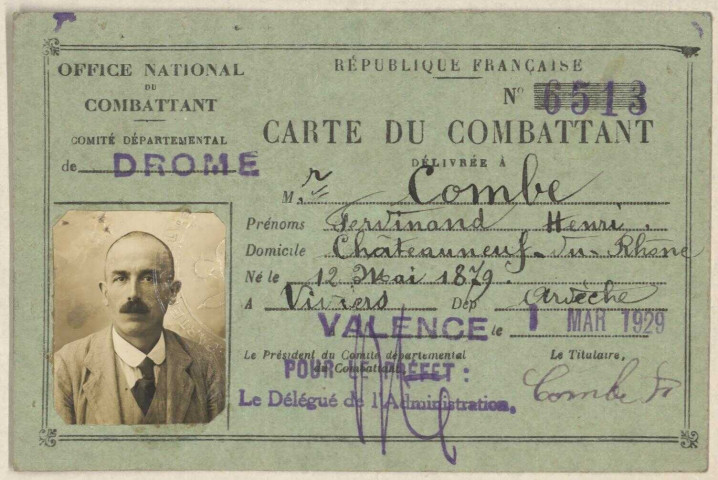 OFFICE NATIONAL
DU
COMBATTANT
COMITÉ DÉPARTEMENTAL
de DROME
RÉPUBLIQUE FRANÇAISE
N° 6513
CARTE DU COMBATTANT
DÉLIVRÉE À
M. r Combe
Prénoms Ferdinand Henri.
Domicile Châteauneuf-du-Rhône
Né le 12 Mai 1879.
A Viviers Dép Ardèche
VALENCE le 1 MAR 1929
Le Président du Comité départemental
du Combattant,
POUR LE PRÉFET :
Le Délégué de l'Administration,
Le Titulaire,
Combe F